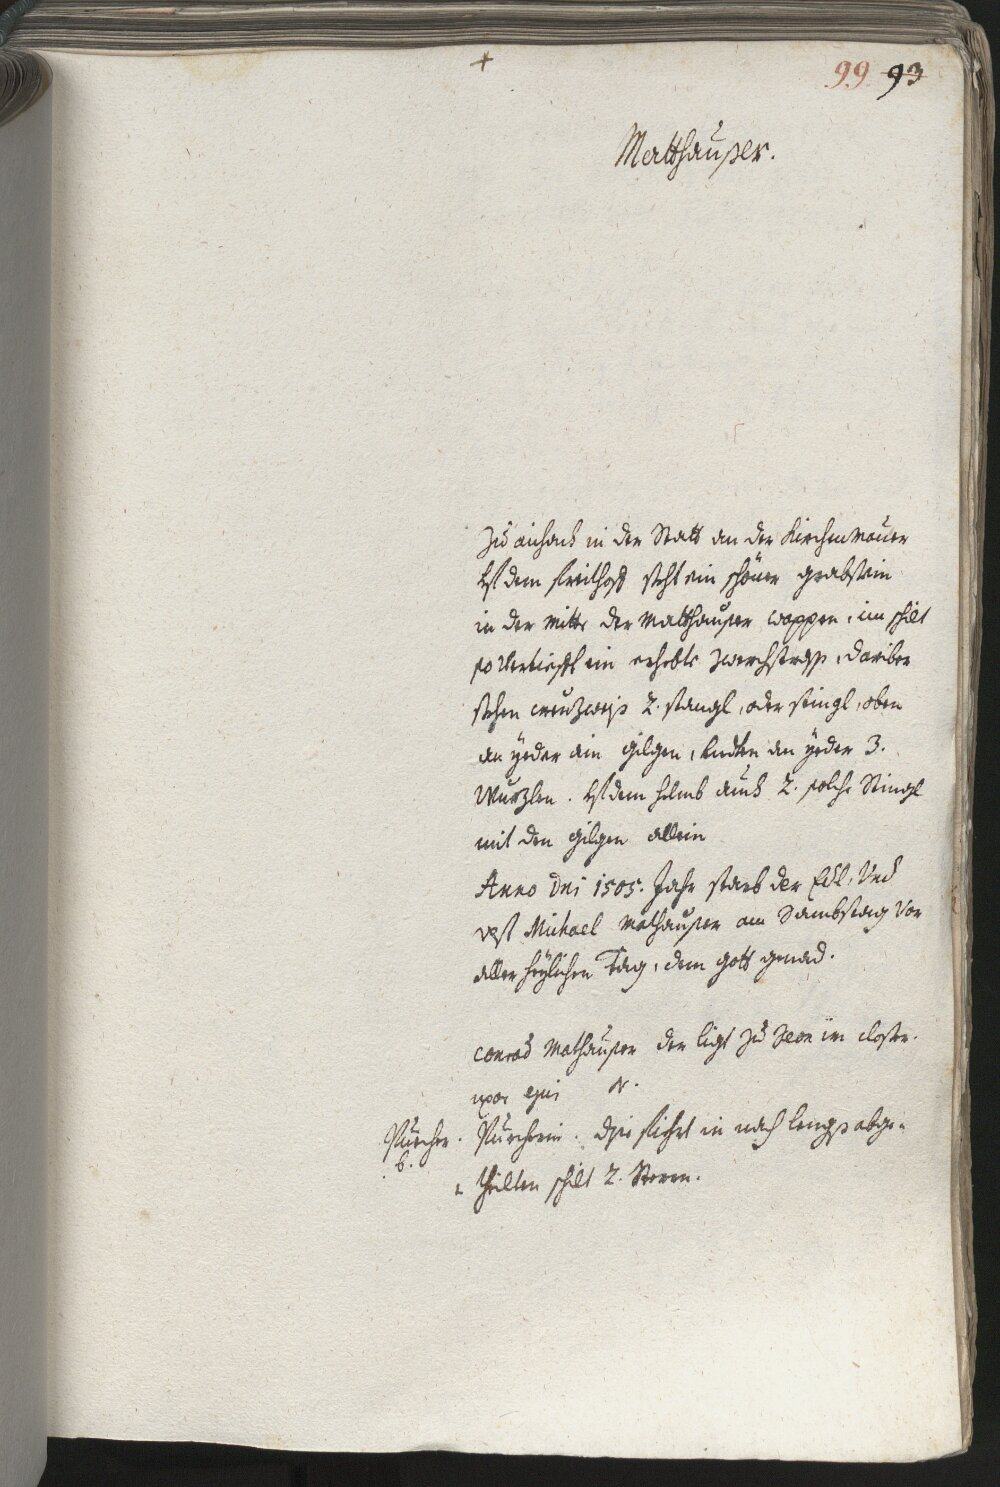 +
99 93
Matthaußer.
Zu aichach in der Statt an der Kirchenmauer
Uf dem freithoff steht ein schöner grabstein
in der mitte der Matthaußer wappen, im schilt
so Vertiefft ein erhebts zwerchstraß, dariber
stehen creuzweiß 2. stangl, oder stingl, oben
an yeder ain gilgen, Undten an yeder 3.
Wurzlen. Uf dem helmb auch 2. solche Stingl
mit den gilgen allein
Anno Dni 1505. Jahr starb der Edl, Und
vest Michael Mathaußer am Sambstag Vor
aller heylichen Tag, dem gott genad.
Conrad Mathaußer der ligt zu Seon im closter.
uxor ejus N.
Pürcher. Pürcherin. die fiehrt in nach lengß abge-
b.
theilten schilt 2. Stern.